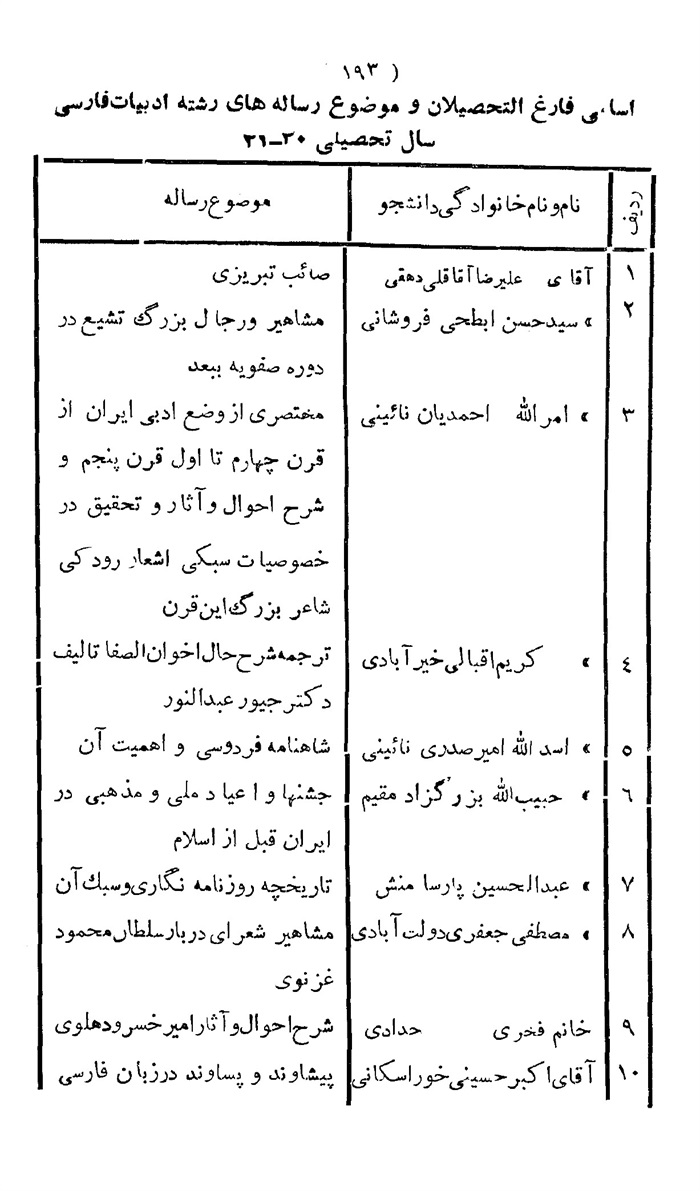 ( ۱۹۳
اسامی فارغ التحصیلان و موضوع رساله های رشته ادبیات فارسی
سال تحصیلی ۳۰-۳۱
ردیف | نام و نام خانوادگی دانشجو | موضوع رساله
۱ | آقای علیرضا آقاقلی دهقی | صائب تبریزی
۲ | » سید حسن ابطحی فروشانی | مشاهیر ورجال بزرگ تشیع در
دوره صفویه ببعد
۳ | » امرالله احمدیان نائینی | مختصری از وضع ادبی ایران از
قرن چهارم تا اول قرن پنجم و
شرح احوال و آثار و تحقیق در
خصوصیات سبکی اشعار رودکی
شاعر بزرگ این قرن
٤ | » کریم اقبالی خیرآبادی | ترجمه شرح حال اخوان الصفا تالیف
دکتر جیور عبدالنور
٥ | » اسدالله امیرصدری نائینی | شاهنامه فردوسی و اهمیت آن
٦ | » حبیب‌الله بزرگزاد مقیم | جشنها و اعیاد ملی و مذهبی در
ایران قبل از اسلام
۷ | » عبدالحسین پارسا منش | تاریخچه روزنامه نگاری و سبك آن
۸ | » مصطفی جعفری دولت آبادی | مشاهیر شعرای دربار سلطان محمود
غزنوی
۹ | خانم فخری حدادی | شرح احوال و آثار امیر خسرو دهلوی
۱۰ | آقای اکبر حسینی خوراسکانی | پیشاوند و پساوند در زبان فارسی